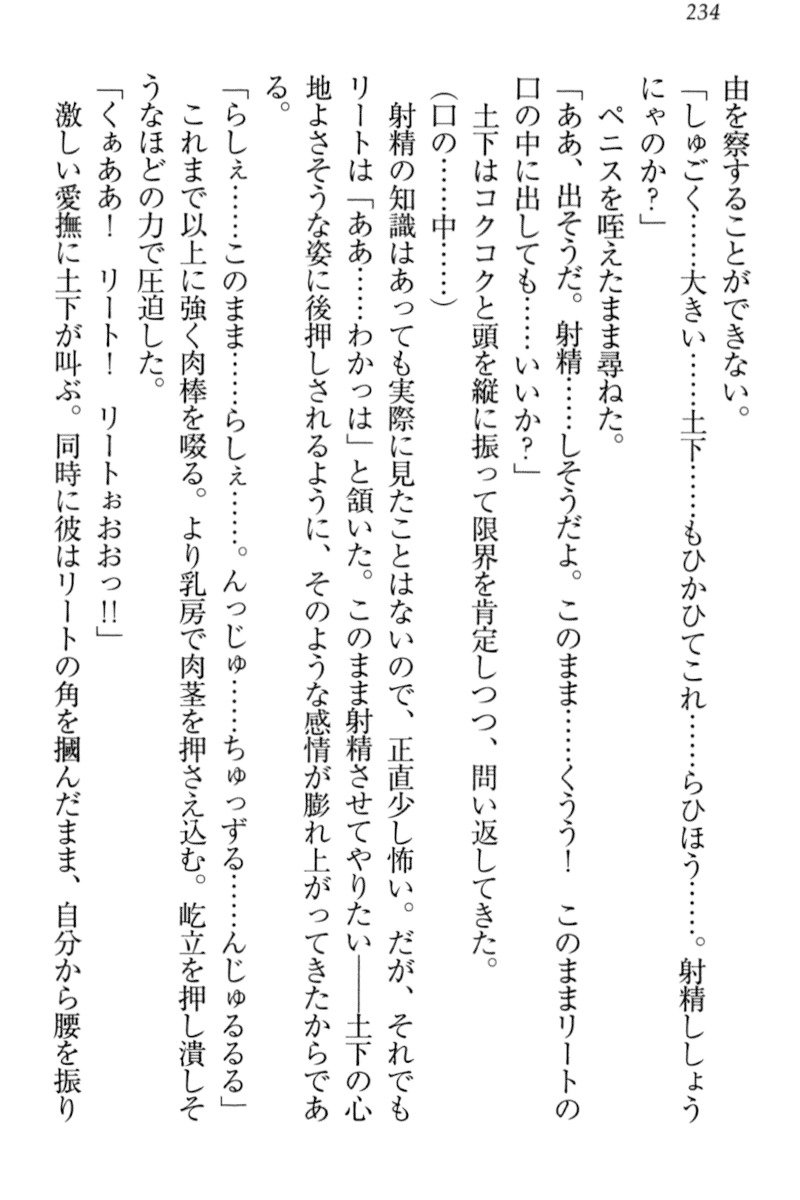 234
由を察することができない。
「しゅごく……大きい……土下……もひかひてこれ……らひほう……。射精ししょう
にゃのか？」
　ペニスを咥えたまま尋ねた。
「ああ、出そうだ。射精……しそうだよ。このまま……くうう！　このままリートの
口の中に出しても……いいか？」
　土下はコクコクと頭を縦に振って限界を肯定しつつ、問い返してきた。
（口の……中……）
　射精の知識はあっても実際に見たことはないので、正直少し怖い。だが、それでも
リートは「ああ……わかっは」と頷いた。このまま射精させてやりたい――土下の心
地よさそうな姿に後押しされるように、そのような感情が膨れ上がってきたからであ
る。
「らしぇ……このまま……らしぇ……。んっじゅ……ちゅっずる……んじゅるるる」
　これまで以上に強く肉棒を啜る。より乳房で肉茎を押さえ込む。屹立を押し潰しそ
うなほどの力で圧迫した。
「くぁああ！　リート！　リートぉおおっ!!」
　激しい愛撫に土下が叫ぶ。同時に彼はリートの角を摑んだまま、自分から腰を振り